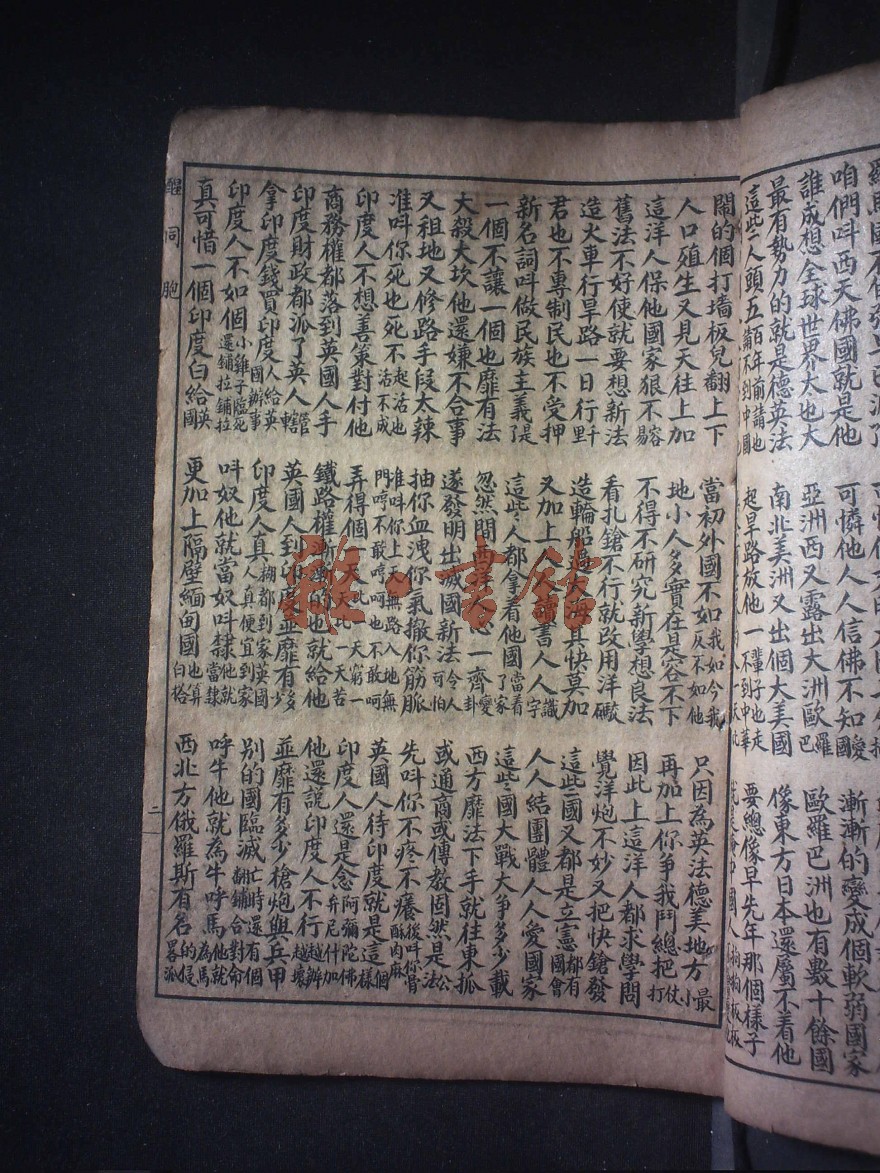 咱們呌西天佛國就是他
可憐他人人信佛不知愛國
漸漸的變成個軟弱國家
誰成想全球世界大也大
亞洲西又露出大洲歐羅巴
歐羅巴洲也有數十餘國
最有勢力的就是德英法
南北美洲又出個大美國
像東方日本還屬不着他
這些人頭五百年前請也請不到中國
起旱路放他一輩子也走不到中華
要總像早先年那個樣子
鬧的個打墻板兒翻上下
當初外國不如我如今我反不如他
只因為英法德美地方最小
人口殖生又見天往上加
地小人多實在是容不下
再加上你爭我鬥總把仗打
這洋人保他國家狠不容易
不得不研究新學想良法
因此上這洋人都求學問
舊法不好使就要想新法
看扎鎗不行就改用洋礮
覺洋炮不妙又把快鎗發
造火車行旱路一日行千里
造輪船過大海其快莫加
這些國又都是立憲都有國會
君也不專制民也不受押
又加上人人讀書人人識字
人人結團體人人愛國家
新名詞呌做民族主義了是
這些人都拿着他國當着了家
這些國大戰大爭多少載
一個不讓一個也靡有法
忽然間西洋人心一齊變卦
西方靡法下手就往東抓
大殺大坎他還嫌不合事
遂發明出滅國新法令人可怕
或通商或傳教固然是公法
又租地又修路手段太辣
抽你血洩你氣撤你筋脈
先呌你不疼不癢後呌你骨酥肉麻
准呌你死也死不起活也活不成
准呌你上天無路入地無門哼不敢哼呵也不敢呵
英國人待印度就是這個樣
印度人不想善策對付他
弄得個一天窮一天一天苦
印度人還是念阿彌陀佛弁尼什加
商務權都落到英國人手
鐵路權也就給他
他還說印度人不行越辦越壞
印度財政都派了英人管轄
英國人到印度並靡有多少
並靡有多少槍炮與兵甲
拿印度錢買印度人給英國辦事
印度人真糊都到家英國人真便宜到家
別的國臨滅亡時還有個翻鋪合對命
印度人不如個小雞子臨死還鋪拉鋪拉
呌奴他就當奴呌隸他就當隸
呼牛他就為牛呼馬他就為馬
真可惜一個印度白給英國
更加上隔壁緬甸國也算白搭
西北方俄羅斯有名的侵畧派
醒同胞
二
雜·書館